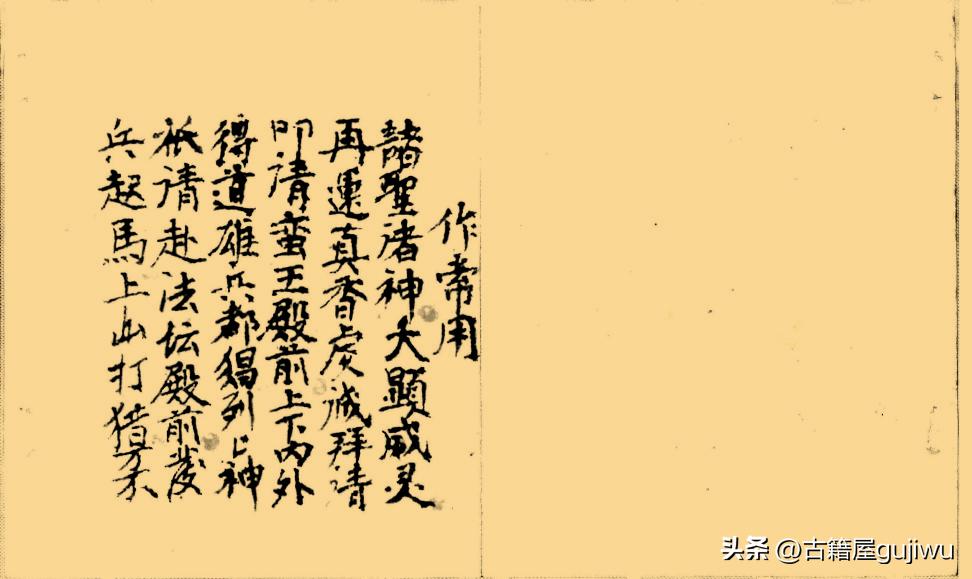 作常用
諸聖诸神大顯威灵
再運真香虔诚拜请
叩请蛮王殿前上下内外
得道雄兵都猖列神
祇请赴法坛殿前發
兵起馬上山打猎
头条 @古籍屋gujiwu